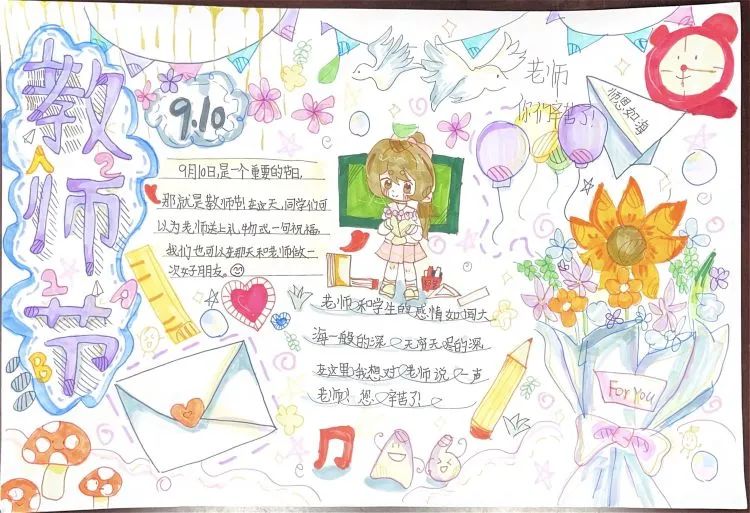 教师节
A
2
1
9
B
9.10
9月10日,是一个重要的节日,
那就是教师节,在这天,同学们可
以为老师送上礼物或一句祝福
我们也可以在那天和老师做一
次好朋友。
老师
你们辛苦了!
师恩如海
老师和学生的感情如同大
海一般的深
在这里我想对老师说一声
老师!您辛苦了!
For You